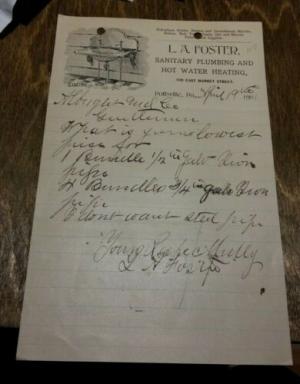 L. A. FOSTER,
SANITARY PLUMBING AND
HOT WATER HEATING,
EAST MARKET STREET,
Pottsville, Pa., April 19th
Gentlemen
What is your lowest
price for
1 Bundle 1/2 in Galv Iron
pipe
4 Bundles 3/4 in galv Iron
pipe
I dont want steel pipe
Yours Respectfully
L A Foster